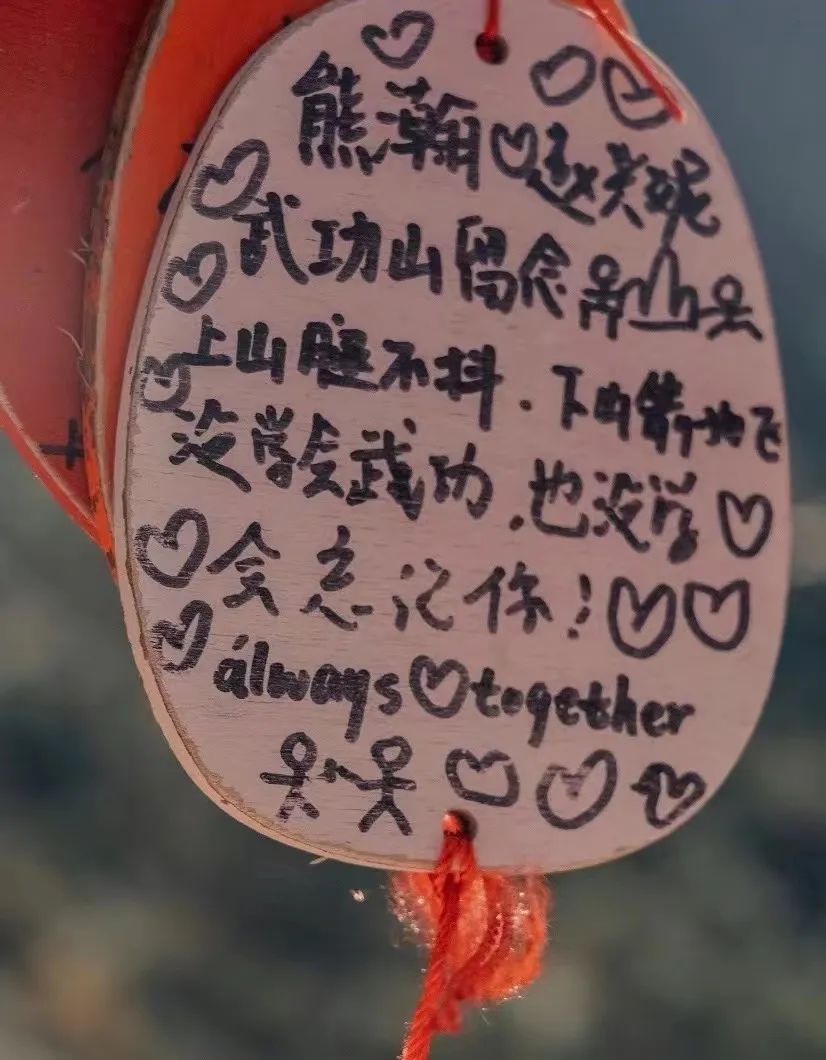 熊瀚 赵
武功山留念
上山腿不抖.下山 飞
没学会武功,也没学
会忘记你!
always together